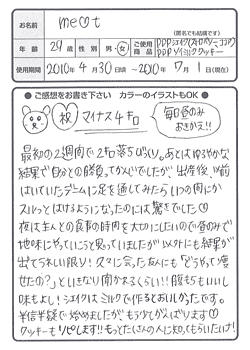 お名前 me♡t
(匿名でも結構です)
年齢 29歳 男・女 ご使用商品 PPPシェイク(ストロベリー、ココア) PPPソイミルククッキー
使用期間 2010年4月30日頃〜2010年7月1日(現在)
●ご感想をお書き下さい カラーのイラストもOK●
祝 マイナス4キロ
毎日昼のみおきかえ!!
最初の2週間で2キロ落ちびっくり。あとはゆるやかな
結果で自分との勝負ってかんじでしたが、出産後、以前
はいていたデニムに足を通してみたらいつの間にか
スルっとはけるようになったのには驚きでした♡
夜は主人との食事の時間を大切にしたいので昼のみで
地味にやっていこうと思っていましたが以外にも結果が
出てうれしい限り!久々に会った友人にも「どうやって痩せ
たの?」といきなり聞かれるくらい!!腹もちもいいし
味もよし!シェイクはミルクで作るとおいしかったです。
半信半疑で始めましたがもう少しがんばります♡
クッキーもリピします!!もっとたくさんの人に知ってもらいたいけ!